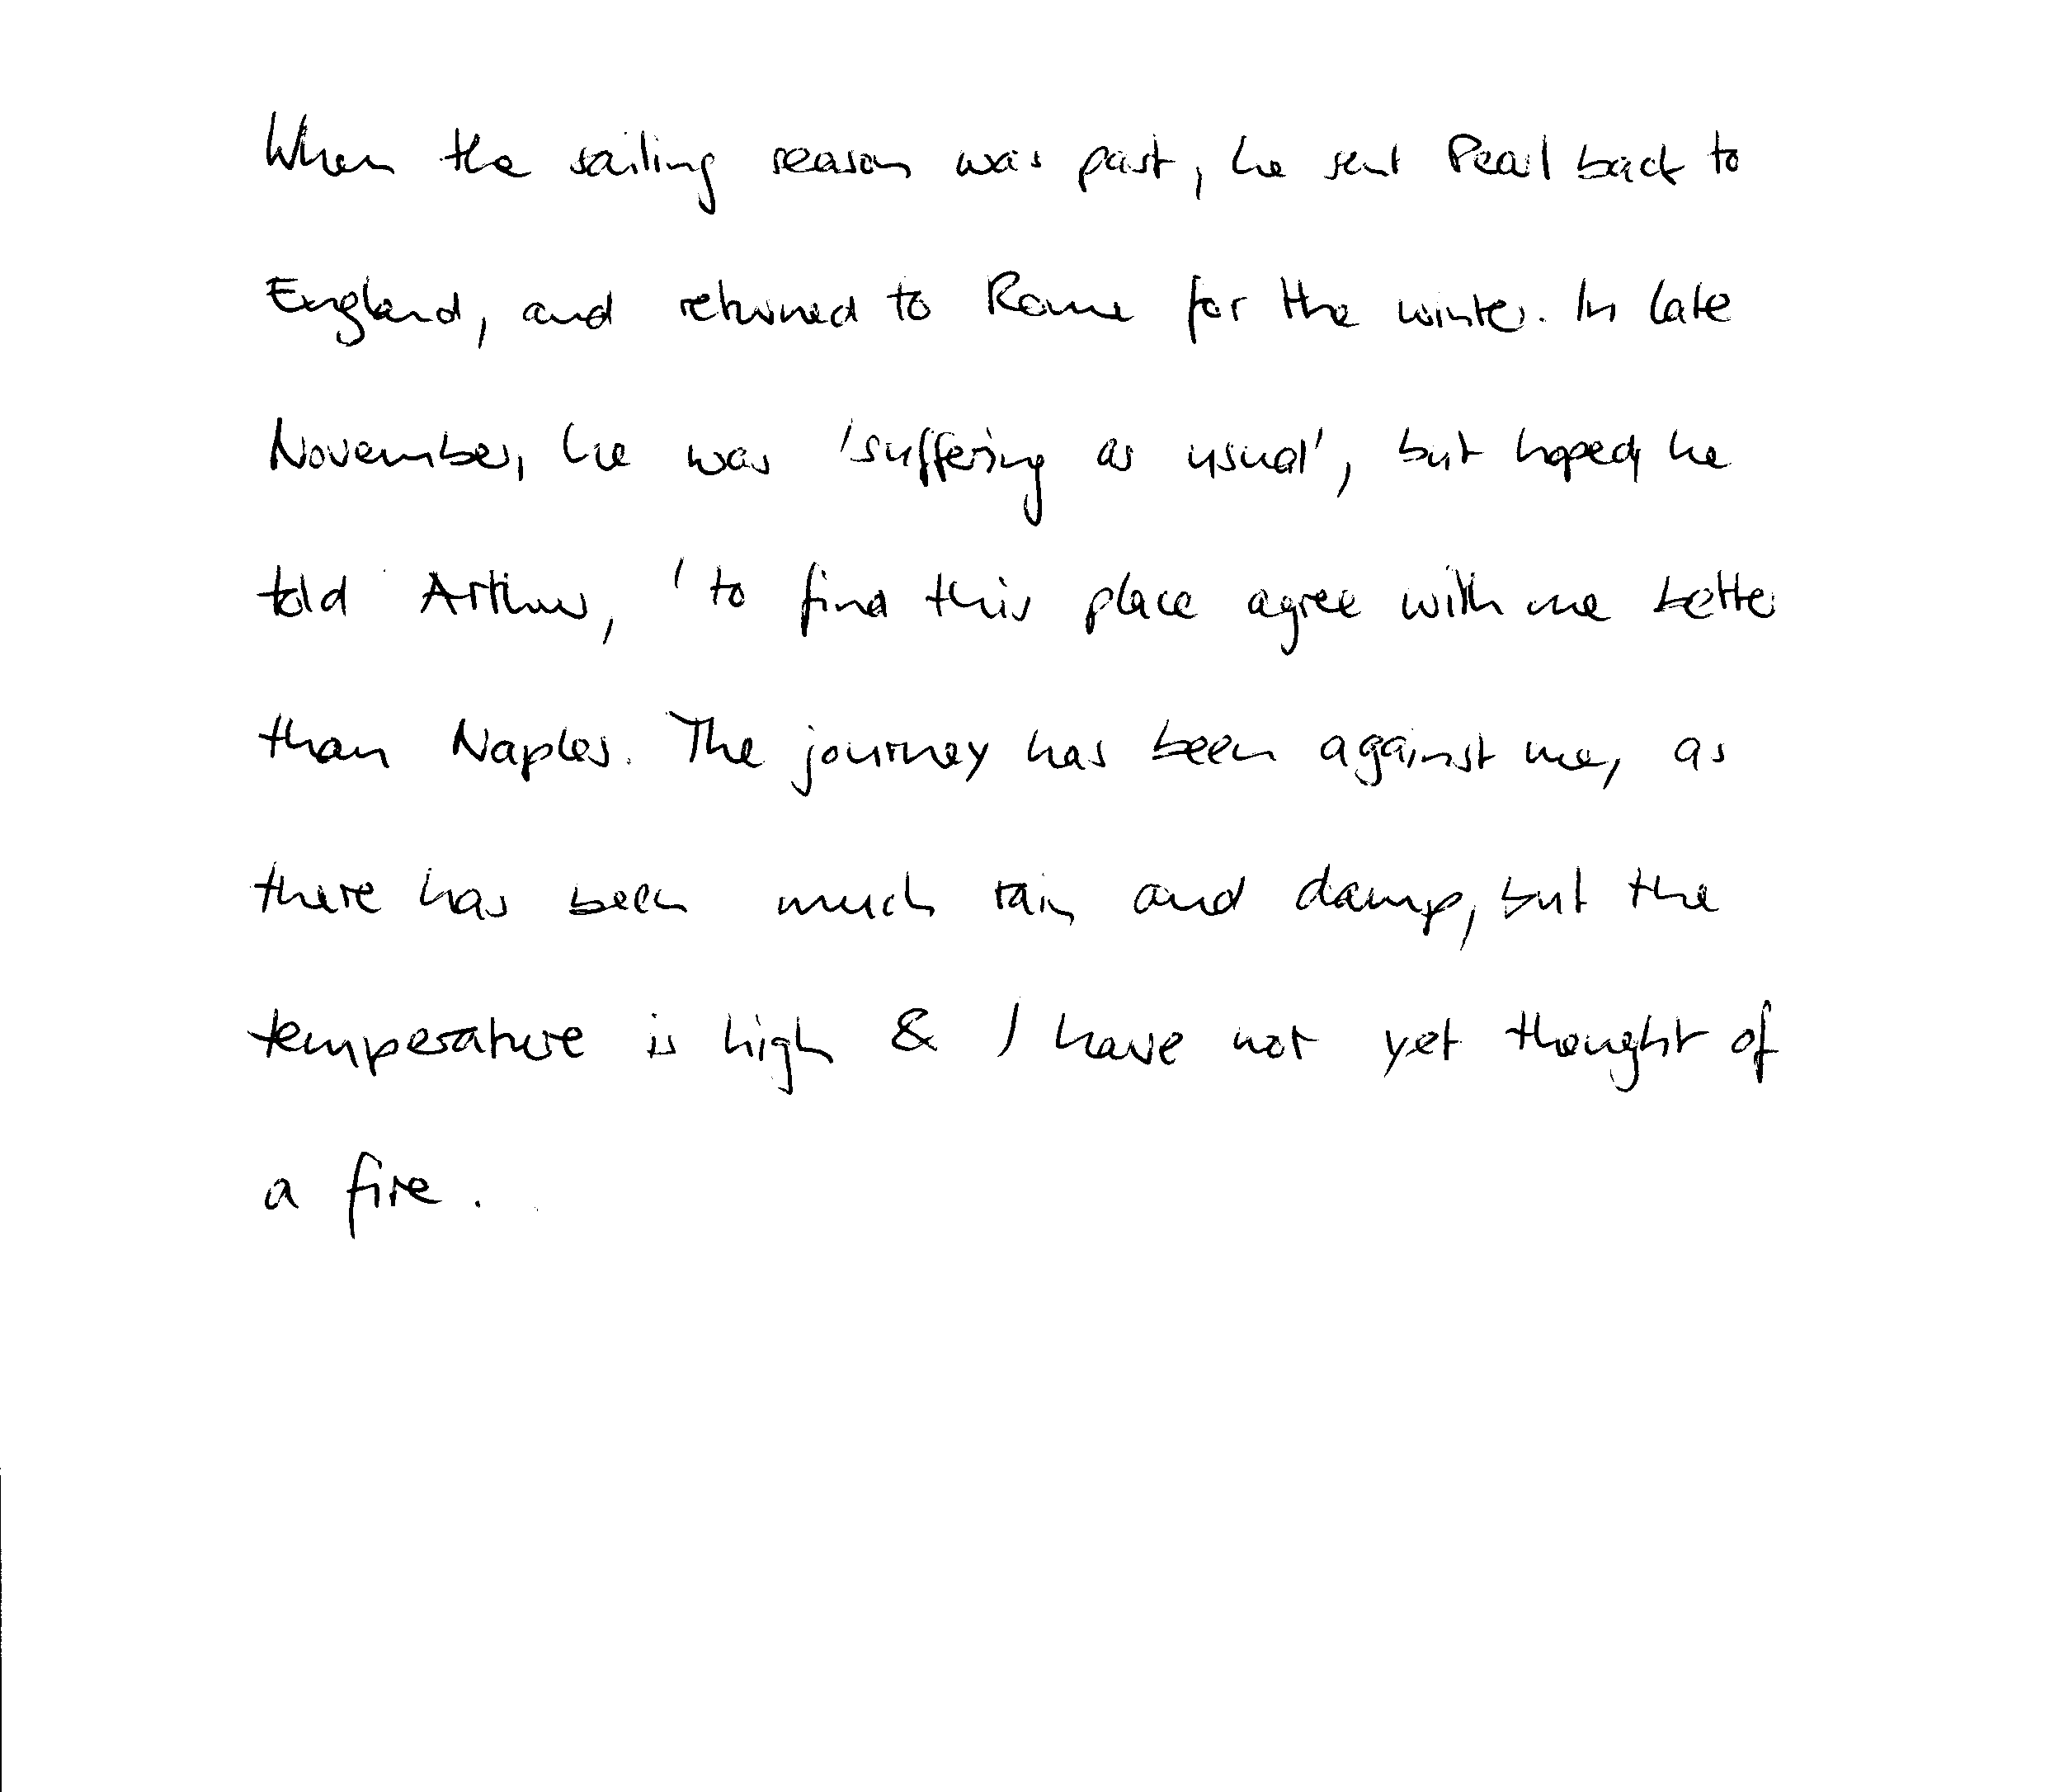 When the sailing season was past, he sent Pearl back to
England, and returned to Rome for the winter. In late
November, he was 'suffering as usual', but hoped, he
told Arthur, 'to find this place agree with me better
than Naples. The journey has been against me, as
there has been much rain and damp, but the
temperature is high & I have not yet thought of
a fire.